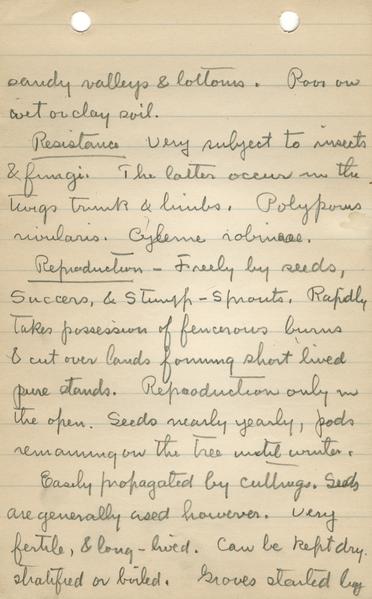 sandy valleys & bottoms. Poor on
wet or clay soil.
Resistance Very subject to insects
& fungi. The latter occur in the
twigs trunk & limbs. Polyporus
rimularis. Cylleme robiniae.
Reproduction - Freely by seeds,
Succers, & Stump-Sprouts. Rapidly
takes possession of burns
& cut over lands forming short lived
pure stands. Reproduction only in
the open. Seeds nearly yearly, pods
remaining on the tree until winter.
Easily propagated by cuttings. Seeds
are generally used however. Very
fertile, & long-lived. Can be kept dry.
stratified or boiled. Groves started by